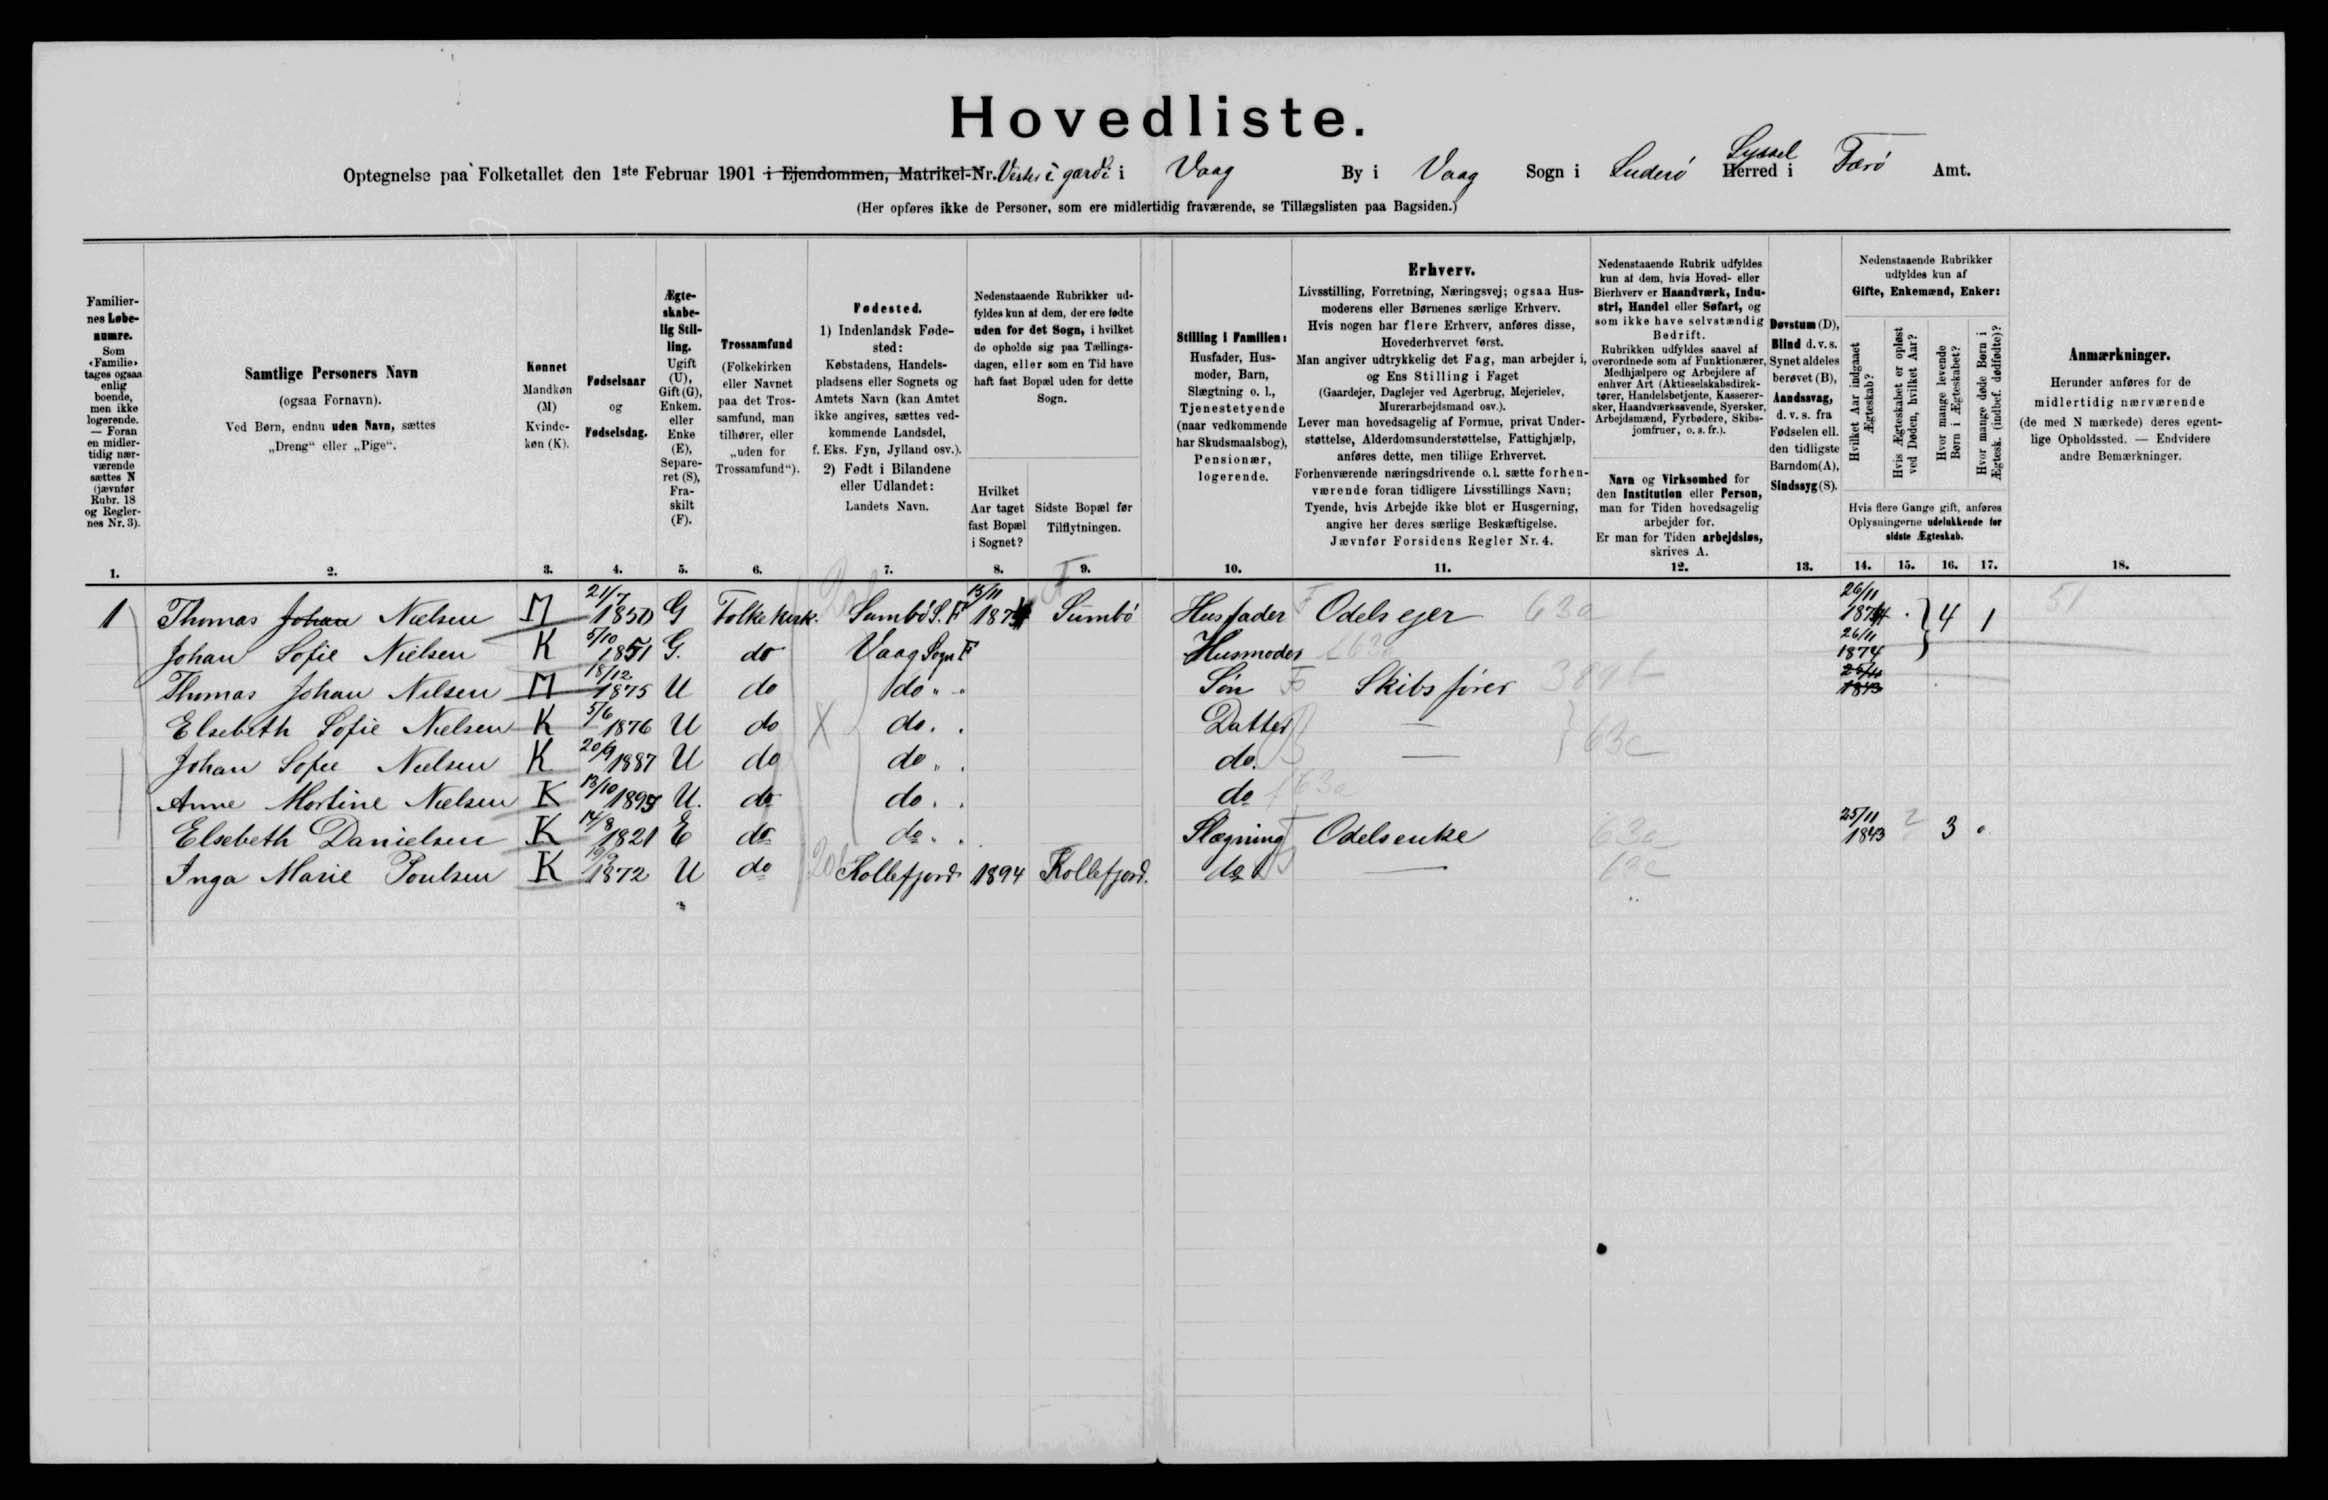 Hovedliste.
Optegnelse paa Folketallet den 1ste Februar 1901 i Ejendommen, Matrikel-Nr. Vester i gardi i Vaag By i Vaag Sogn i Suderö Herred Syssel i Færö Amt.
(Her opføres ikke de Personer, som ere midlertidig fraværende, se Tillægslisten paa Bagsiden.)
Familiernes Løbenumre. Som «Familie» tages ogsaa enlig boende, men ikke logerende. — Foran en midlertidig nærværende sættes N (jævnfør Rubr. 18 og Reglernes Nr. 3).
Samtlige Personers Navn (ogsaa Fornavn). Ved Børn, endnu uden Navn, sættes „Dreng“ eller „Pige“.
Kønnet Mandkøn (M) Kvindekøn (K).
Fødselsaar og Fødselsdag.
Ægteskabelig Stilling. Ugift (U), Gift (G), Enkem. eller Enke (E), Separeret (S), Fraskilt (F).
Trossamfund (Folkekirken eller Navnet paa det Trossamfund, man tilhører, eller „uden for Trossamfund“).
Fødested. 1) Indenlandsk Fødested: Købstadens, Handelspladsens eller Sognets og Amtets Navn (kan Amtet ikke angives, sættes vedkommende Landsdel, f. Eks. Fyn, Jylland osv.). 2) Født i Bilandene eller Udlandet: Landets Navn.
Nedenstaaende Rubrikker udfyldes kun af dem, der ere fødte uden for det Sogn, i hvilket de opholde sig paa Tællingsdagen, eller som en Tid have haft fast Bopæl uden for dette Sogn.
Hvilket Aar taget fast Bopæl i Sognet?
Sidste Bopæl før Tilflytningen.
Stilling i Familien: Husfader, Husmoder, Barn, Slægtning o. l., Tjenestetyende (naar vedkommende har Skudsmaalsbog), Pensionær, logerende.
Erhverv.
Livsstilling, Forretning, Næringsvej; ogsaa Husmoderens eller Børnenes særlige Erhverv.
Hvis nogen har flere Erhverv, anføres disse, Hovederhvervet først.
Man angiver udtrykkelig det Fag, man arbejder i, og Ens Stilling i Faget
(Gaardejer, Daglejer ved Agerbrug, Mejerielev, Murerarbejdsmand osv.).
Lever man hovedsagelig af Formue, privat Understøttelse, Alderdomsunderstøttelse, Fattighjælp, anføres dette, men tillige Erhvervet.
Forhenværende næringsdrivende o.l. sætte forhenværende foran tidligere Livsstillings Navn;
Tyende, hvis Arbejde ikke blot er Husgerning, angive her deres særlige Beskæftigelse.
Jævnfør Forsidens Regler Nr. 4.
Nedenstaaende Rubrik udfyldes kun af dem, hvis Hoved- eller Bierhverv er Haandværk, Industri, Handel eller Søfart, og som ikke have selvstændig Bedrift.
Rubrikken udfyldes saavel af overordnede som af Funktionærer, Medhjælpere og Arbejdere af enhver Art (Aktieselskabsdirektører, Handelsbetjente, Kasserersker, Haandværkssvende, Syersker, Arbejdsmænd, Fyrbødere, Skibsjomfruer, o. s. fr.).
Navn og Virksomhed for den Institution eller Person, man for Tiden hovedsagelig arbejder for.
Er man for Tiden arbejdsløs, skrives A.
Døvstum (D), Blind d. v. s. Synet aldeles berøvet (B), Aandssvag, d. v. s. fra Fødselen ell. den tidligste Barndom (A), Sindssyg (S).
Nedenstaaende Rubrikker udfyldes kun af Gifte, Enkemænd, Enker:
Hvilket Aar indgaaet Ægteskab?
Hvis Ægteskabet er opløst ved Døden, hvilket Aar?
Hvor mange levende Børn i Ægteskabet?
Hvor mange døde Børn i Ægtesk. (indbef. dødfødte)?
Hvis flere Gange gift, anføres Oplysningerne udelukkende for sidste Ægteskab.
Anmærkninger. Herunder anføres for de midlertidig nærværende (de med N mærkede) deres egentlige Opholdssted. — Endvidere andre Bemærkninger.
1. 2. 3. 4. 5. 6. 7. 8. 9. 10. 11. 12. 13. 14. 15. 16. 17. 18.
1 Thomas Johan Nielsen M 21/7 1850 G Folkekirk. Sumbö S. F 13/11 1874 Sumbö Husfader F Odelsejer 63a 26/11 1874 4 1 51
Johan Sofie Nielsen K 5/10 1851 G. do Vaag Sogn F Husmoder 63a 26/11 1874
Thomas Johan Nielsen M 18/12 1875 U do do " " Søn Skibsfører 25/11 1843
Elsebeth Sofie Nielsen K 5/6 1876 U do X do. . Datter — 63c
Johan Sofie Nielsen K 20/9 1887 U do do " . do. —
Anne Mortine Nielsen K 13/10 1895 U. do do. . do 63a
Elsebeth Danielsen K 14/8 1821 E do do. . Slægning F Odelsenke 63a 25/11 1843 2 3 0
Inga Marie Poulsen K 1872 U do Kollefjord 1894 Kollefjord. do — 63c